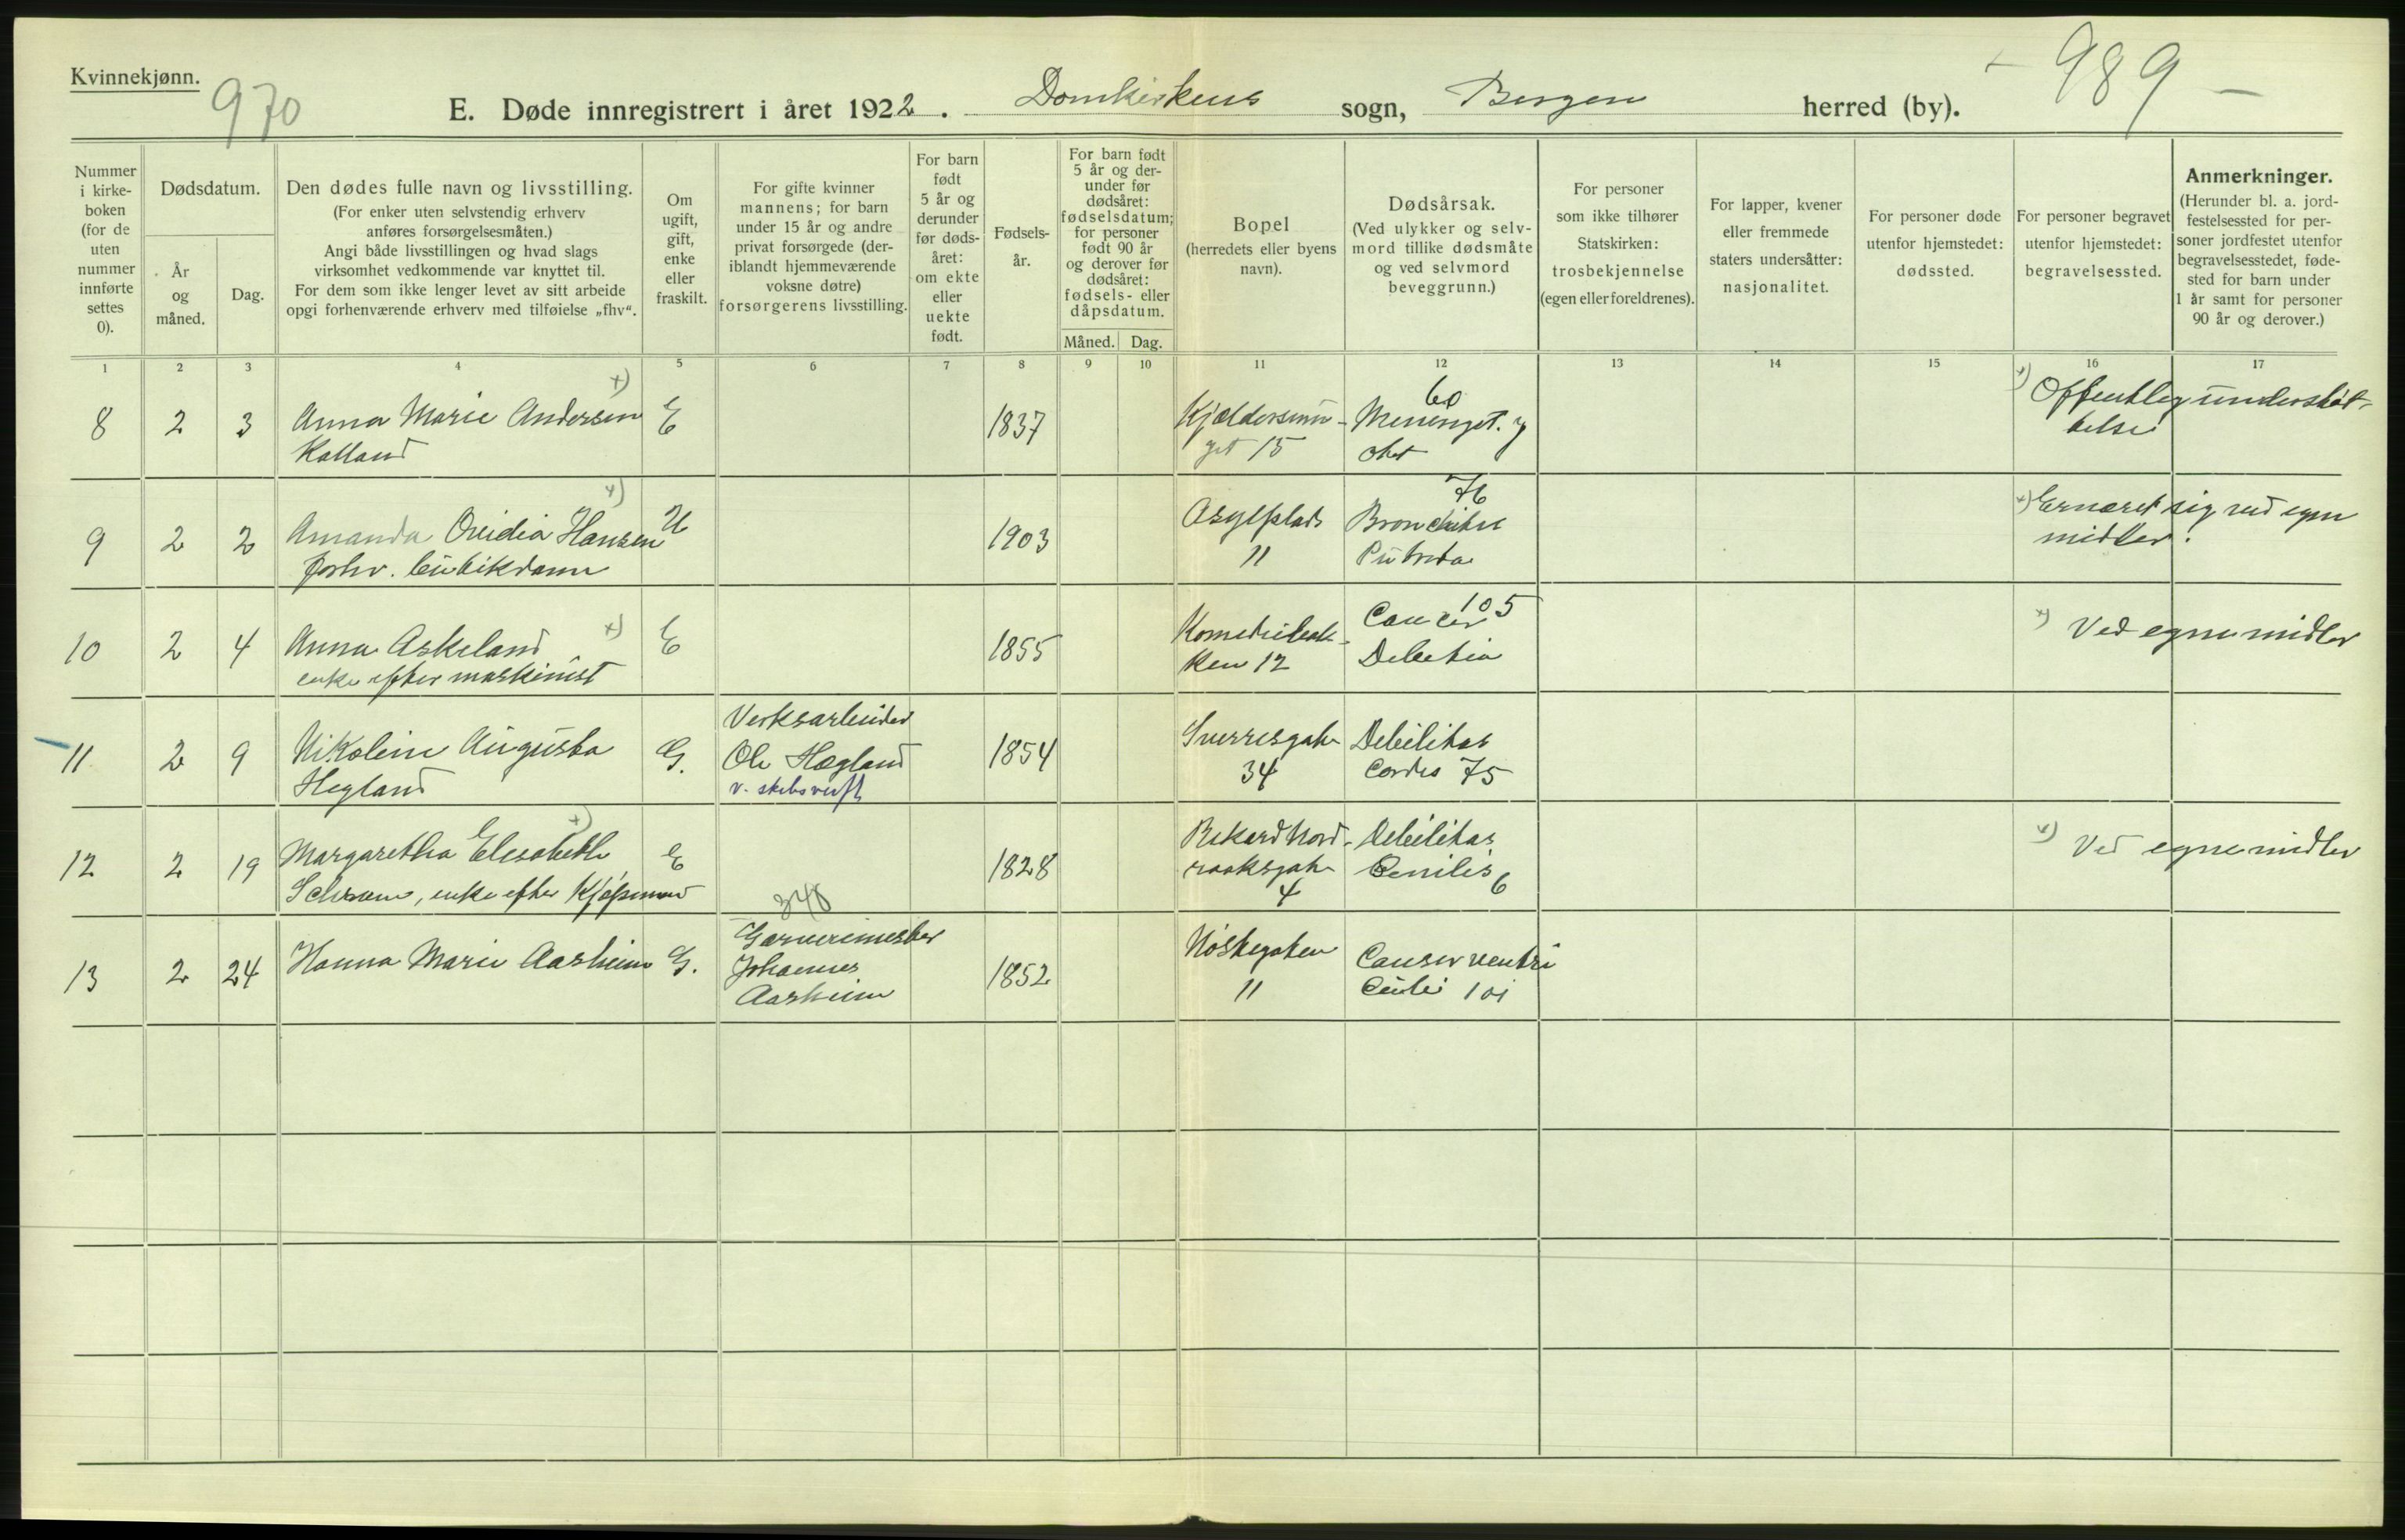 Kvinnekjønn.
970
E. Døde innregistrert i året 1922. Domkirkens sogn, Bergen herred (by).
- 989 -
Nummer i kirke-boken (for de uten nummer innførte settes 0).
Dødsdatum.
År og måned.
Dag.
Den dødes fulle navn og livsstilling.
(For enker uten selvstendig erhverv
anføres forsørgelsesmåten.)
Angi både livsstillingen og hvad slags
virksomhet vedkommende var knyttet til.
For dem som ikke lenger levet av sitt arbeide
opgi forhenværende erhverv med tilføielse „fhv“.
Om ugift, gift, enke eller fraskilt.
For gifte kvinner
mannens; for barn
under 15 år og andre
privat forsørgede (der-
iblandt hjemmeværende
voksne døtre)
forsørgerens livsstilling.
For barn født 5 år og derunder før døds-året: om ekte eller uekte født.
Fødsels-år.
For barn født
5 år og der-
under før
dødsåret:
fødselsdatum;
for personer
født 90 år
og derover før
dødsåret:
fødsels- eller
dåpsdatum.
Måned. Dag.
Bopel
(herredets eller byens
navn).
Dødsårsak.
(Ved ulykker og selv-
mord tillike dødsmåte
og ved selvmord
beveggrunn.)
For personer
som ikke tilhører
Statskirken:
trosbekjennelse
(egen eller foreldrenes).
For lapper, kvener
eller fremmede
staters undersåtter:
nasjonalitet.
For personer døde
utenfor hjemstedet:
dødssted.
For personer begravet
utenfor hjemstedet:
begravelsessted.
Anmerkninger.
(Herunder bl. a. jord-
festelsessted for per-
soner jordfestet utenfor
begravelsesstedet, føde-
sted for barn under
1 år samt for personer
90 år og derover.)
1 2 3 4 5 6 7 8 9 10 11 12 13 14 15 16 17
8 2 3 Anna Marie Andersen x) E 1837
Kalland
15
60
x) Offentleg understøt-
telse
9 2 2 Amanda Ovidia Hansen x) U 1903
forhv.
Asylplads
11
76
Bronchitis
Putrida
x) Ernæret sig ved egne
midler.
10 2 4 Anna Askeland x) E 1855
enke efter maskinist
Komediebak-
ken 12
Cancer 105
x) Ved egne midler
11 2 9 Nikoline Augusta G. 1854
Hegland
Verksarbeider
Ole Hægland
v. skibsverft
Sverresgate
34
Debilitas
Cordis 75
12 2 19 Margaretha Elisabeth x) E 1828
enke efter Kjøpmand
Rikard Nord-
raaksgate
4
Debilitas
Senilis 6
x) Ved egne midler
13 2 24 Hanna Marie Aasheim G. 1852
340
Garverimester
Johannes
Aasheim
Nøstegaten
11
Cancer ventri
culi 101